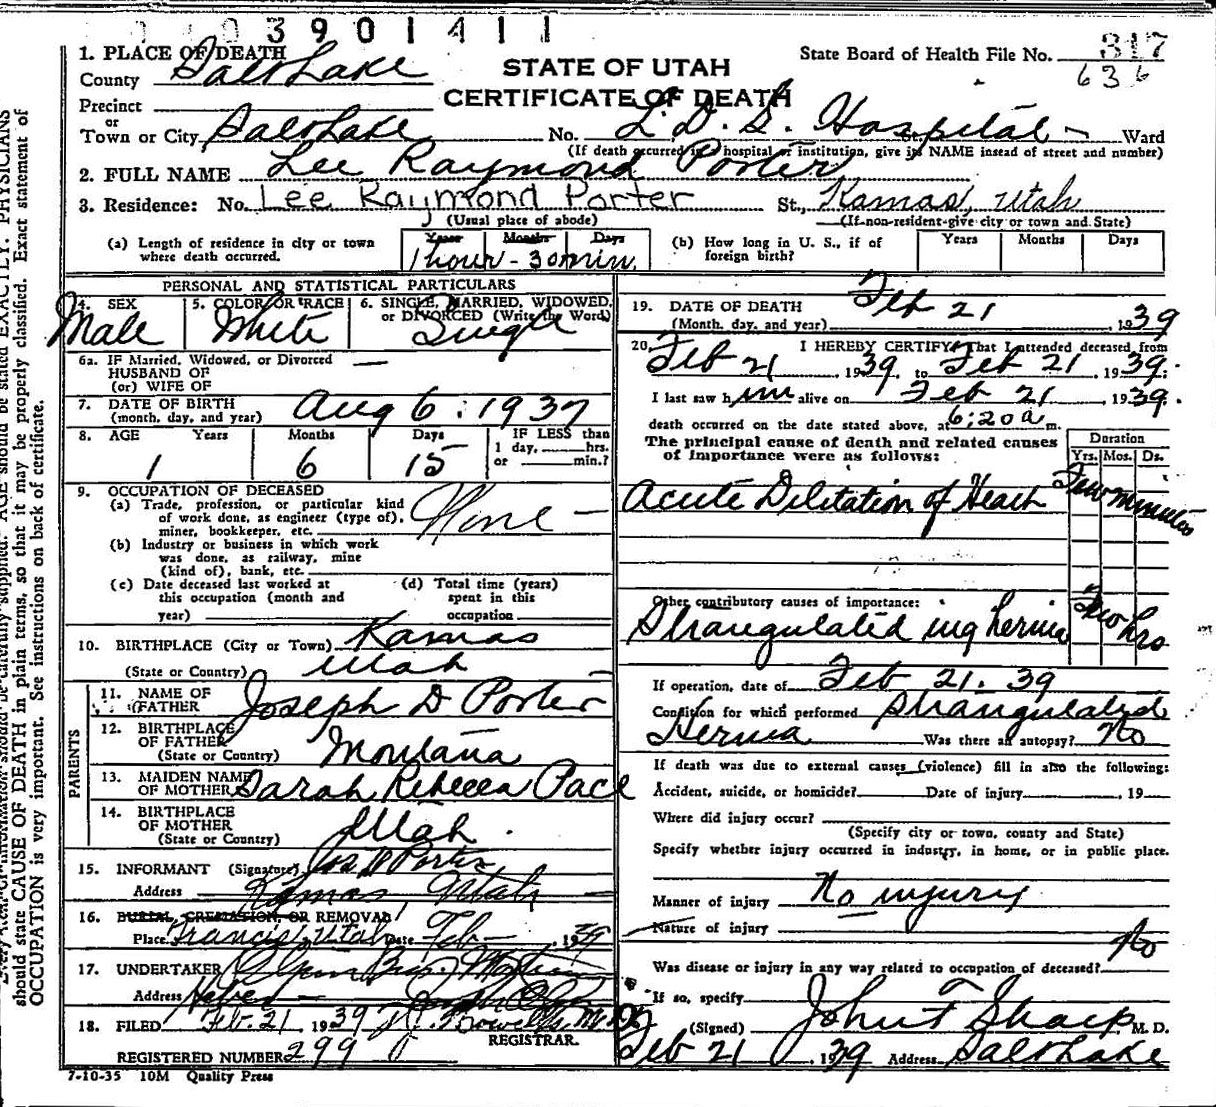 3901411
1. PLACE OF DEATH
County Salt Lake
STATE OF UTAH
CERTIFICATE OF DEATH
State Board of Health File No. 317
636
Precinct
or
Town or City Salt Lake No. L. D. S. Hospital St. Ward
(If death occurred in a hospital or institution, give its NAME instead of street and number)
2. FULL NAME Lee Raymond Porter
3. Residence: No. Lee Raymond Porter St., Kamas, Utah
(Usual place of abode) (If non-resident-give city or town and State)
(a) Length of residence in city or town where death occurred. Years Months Days
1 hour - 30 min.
(b) How long in U. S., if of foreign birth? Years Months Days
PERSONAL AND STATISTICAL PARTICULARS
4. SEX 5. COLOR OR RACE 6. SINGLE, MARRIED, WIDOWED, or DIVORCED (Write the Word)
Male White Single
6a. IF Married, Widowed, or Divorced —
HUSBAND OF
(or) WIFE OF
7. DATE OF BIRTH Aug 6 : 1937
(month, day, and year)
8. AGE Years Months Days IF LESS than
1 day, hrs.
or min.?
1 6 15
9. OCCUPATION OF DECEASED
(a) Trade, profession, or particular kind None —
of work done, as engineer (type of),
miner, bookkeeper, etc.
(b) Industry or business in which work
was done, as railway, mine
(kind of), bank, etc.
(c) Date deceased last worked at (d) Total time (years)
this occupation (month and spent in this
year) occupation
10. BIRTHPLACE (City or Town) Kamas
(State or Country) Utah
PARENTS
11. NAME OF FATHER Joseph D Porter
12. BIRTHPLACE OF FATHER Montana
(State or Country)
13. MAIDEN NAME OF MOTHER Sarah Rebecca Pace
14. BIRTHPLACE OF MOTHER Utah.
(State or Country)
15. INFORMANT (Signature) Jos D Porter
Address Kamas Utah
16. BURIAL, CREMATION, OR REMOVAL
Place Francis, Utah Date Feb — 1939
17. UNDERTAKER Olpin Bros.
Address Heber —
18. FILED Feb. 21 1939
REGISTRAR.
REGISTERED NUMBER 299
7-10-35 10M Quality Press
19. DATE OF DEATH Feb 21
(Month, day, and year) 1939
20. I HEREBY CERTIFY That I attended deceased from
Feb 21 1939, to Feb 21, 1939.
I last saw him alive on Feb 21 1939.
death occurred on the date stated above, at 6:20 a m.
The principal cause of death and related causes
of importance were as follows:
Duration
Yrs. Mos. Ds.
Acute Dilitation of Heart Few minutes
Other contributory causes of importance:
Strangulated ing hernia Few hrs
If operation, date of Feb 21. 39
Condition for which performed Strangulated
Hernia Was there an autopsy? No
If death was due to external causes (violence) fill in also the following:
Accident, suicide, or homicide? Date of injury , 19
Where did injury occur?
(Specify city or town, county and State)
Specify whether injury occurred in industry, in home, or in public place.
Manner of injury No injury
Nature of injury —
Was disease or injury in any way related to occupation of deceased? No
If so, specify
(Signed) John F Sharp, M. D.
Feb 21, 1939 Address Salt Lake
should state CAUSE OF DEATH in plain terms, so that it may be properly classified. Exact statement of
OCCUPATION is very important. See instructions on back of certificate.